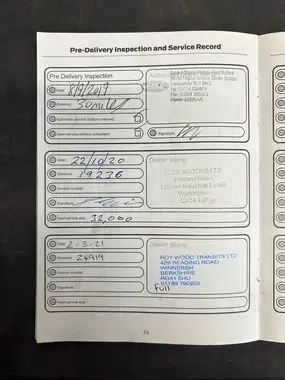 Pre-Delivery Inspection and Service Record
Pre Delivery Inspection
Date: 8/9/2019
Distance: 30 miles
Applicable service actions checked
Open service actions completed
Signature:
Date: 22/10/20
Distance: 19236
Invoice number:
Signature:
Next service due: 32,000
Dealer stamp:
MOTORS LTD
Road
Industrial Estate
Workington
Date: 2-3-21
Distance: 24919
Invoice number:
Signature:
Next service due:
Dealer stamp:
ROY WOOD TRANSITS LTD
429 READING ROAD
WINNERSH
BERKSHIRE
RG41 5HU
01189 790202
Full
24